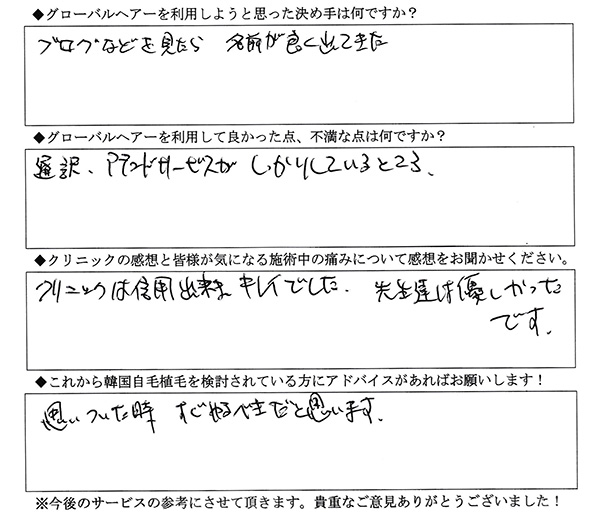 ◆グローバルヘアーを利用しようと思った決め手は何ですか？
ブログなどを見たら 名前が良く出てきた
◆グローバルヘアーを利用して良かった点、不満な点は何ですか？
通訳、アテンドサービスが しっかりしているところ、
◆クリニックの感想と皆様が気になる施術中の痛みについて感想をお聞かせください。
クリニックは信用出来キレイでした. 先生達は優しかった
です.
◆これから韓国自毛植毛を検討されている方にアドバイスがあればお願いします！
思いついた時 すぐやるべきだと思います.
※今後のサービスの参考にさせて頂きます。貴重なご意見ありがとうございました！